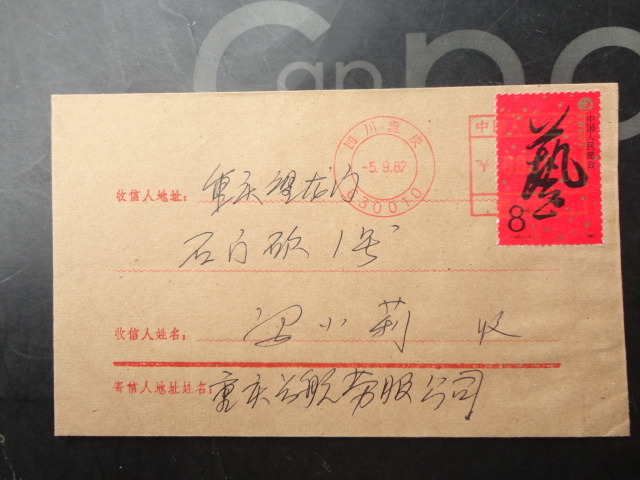 Capo
四川重庆
-5.9.87
630010
中国
中国人民邮政
藝
8
收信人地址：重庆望龙门
石门砍1号
收信人姓名：小莉 收
寄信人地址姓名：重庆长航劳服公司